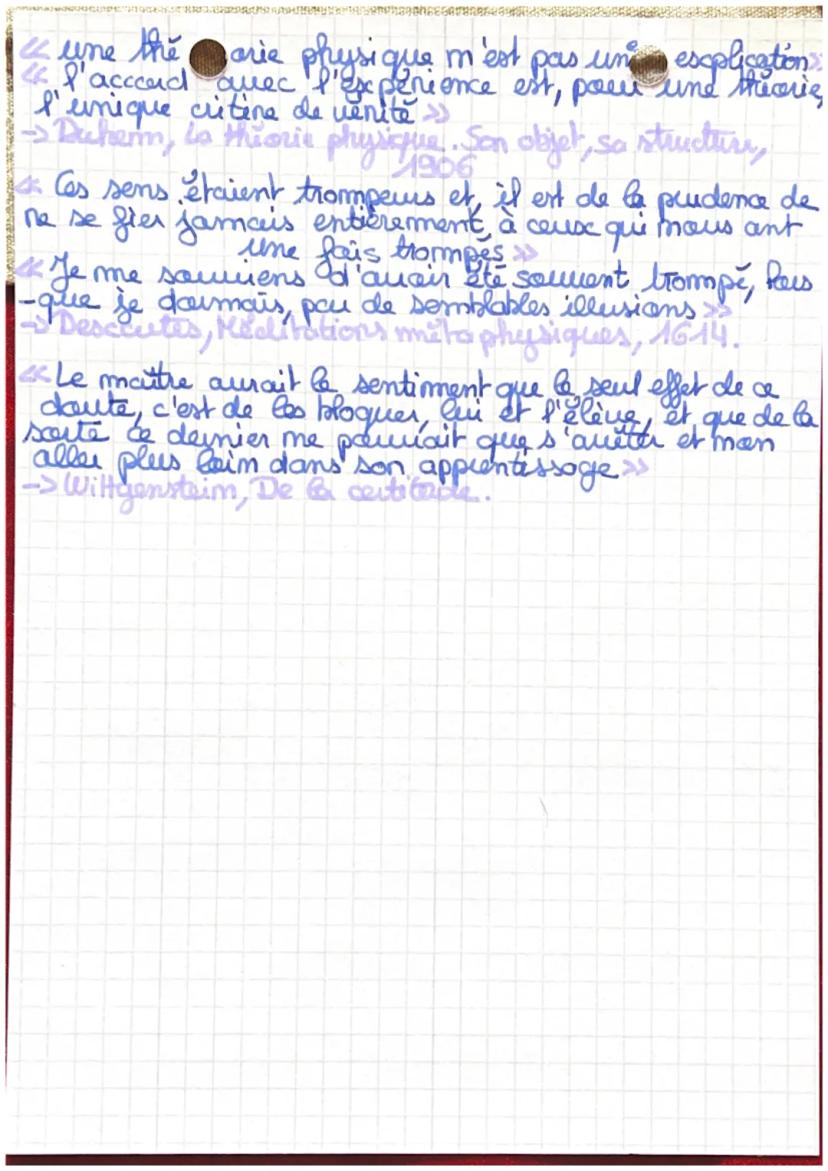 « une thé orie physique n'est pas une explication »
« l'accord avec l'expérience est, pour une théorie,
l'unique critère de vérité »
-> Duhem, La théorie physique. Son objet, sa structure,
1906
« Ces sens étaient trompeurs et, il est de la prudence de
ne se fier jamais entièrement, à ceux qui nous ont
une fois trompés »
« Je me souviens d'avoir été souvent trompé, lors
-que je dormais, par de semblables illusions »
-> Descartes, Méditations métaphysiques, 1614.
« Le maître aurait le sentiment que le seul effet de ce
doute, c'est de les bloquer, lui et l'élève, et que de la
sorte ce dernier ne pouvait que s'arrêter et non
aller plus loin dans son apprentissage »
-> Wittgenstein, De la certitude.